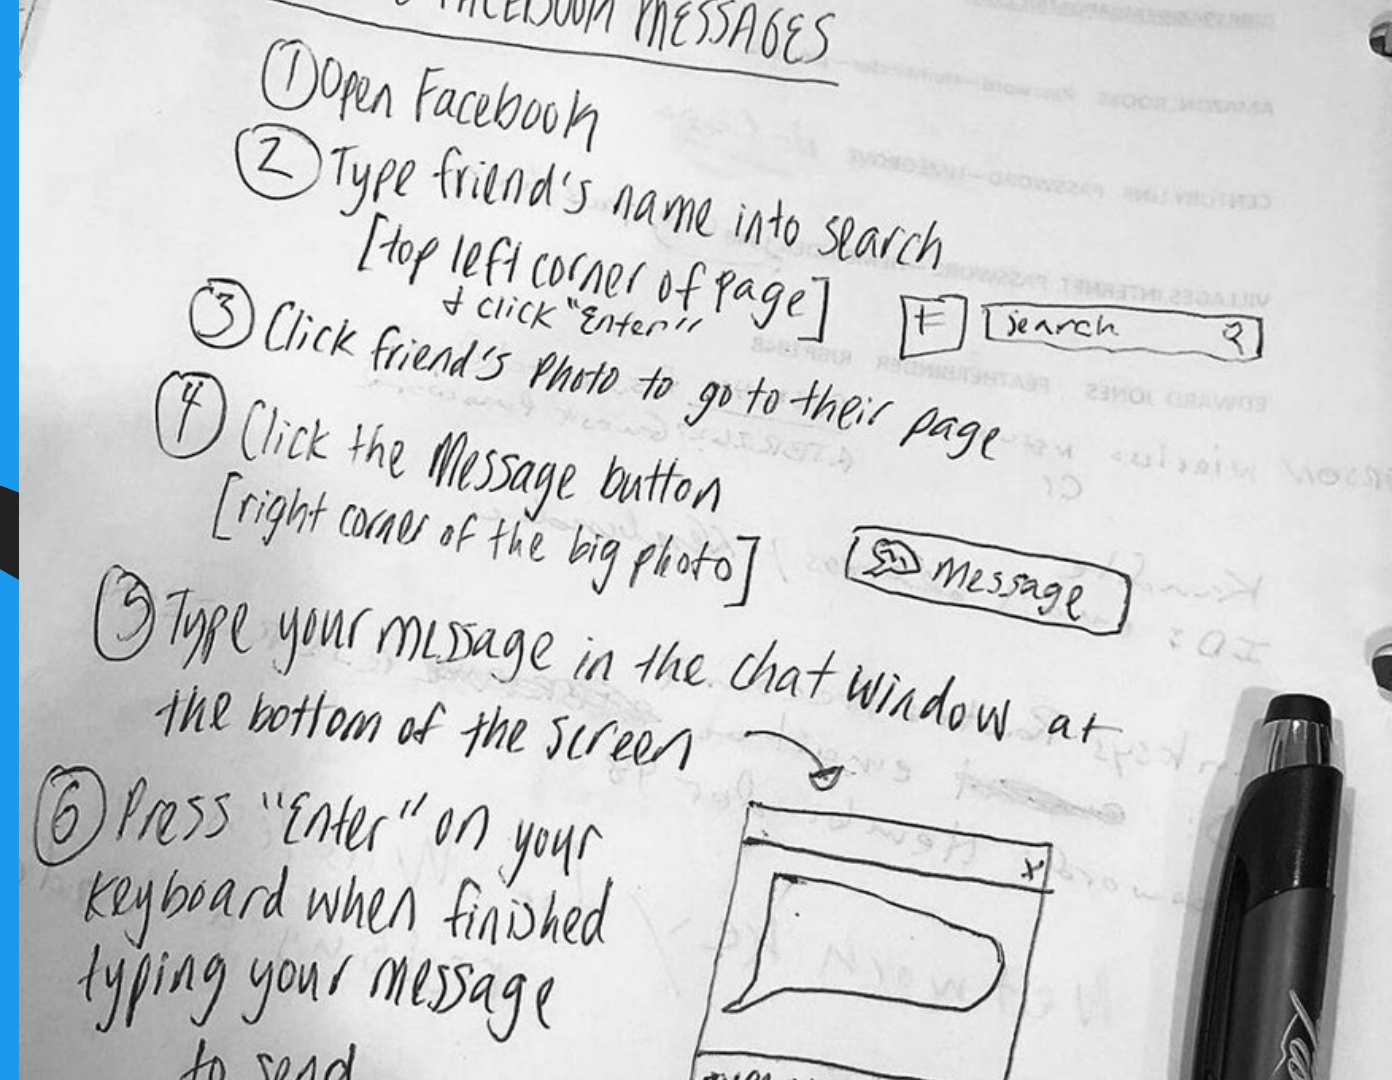 FACEBOOK MESSAGES
① Open Facebook
② Type friend's name into search
[top left corner of page]
& click "Enter"
F search
③ Click friend's photo to go to their page
④ Click the Message button
[right corner of the big photo]
Message
⑤ Type your message in the chat window at
the bottom of the screen
⑥ Press "Enter" on your
keyboard when finished
typing your message
to send
X